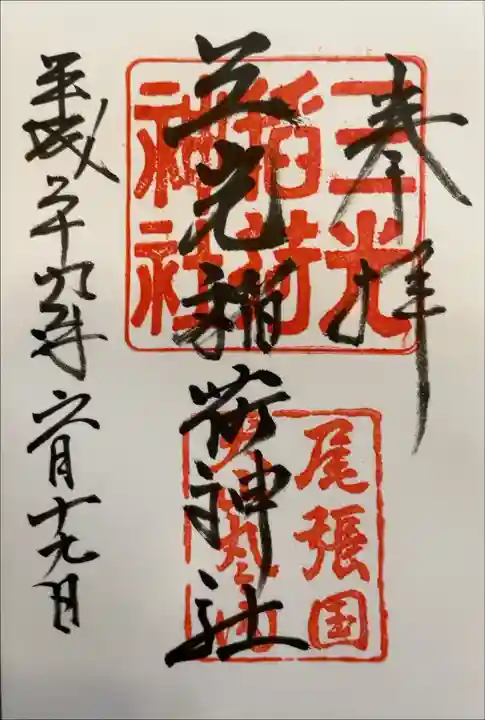 奉拝
三光
稲荷
神社
三光稲荷神社
尾張国
平成二十九年六月十九日